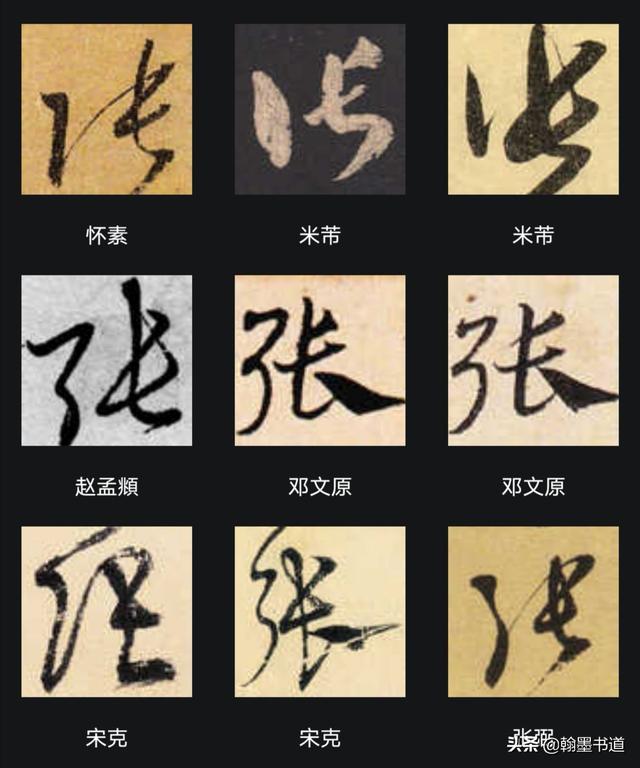 张 张 张
怀素 米芾 米芾
张 张 张
赵孟頫 邓文原 邓文原
张 张 张
宋克 宋克
头条 @翰墨书道